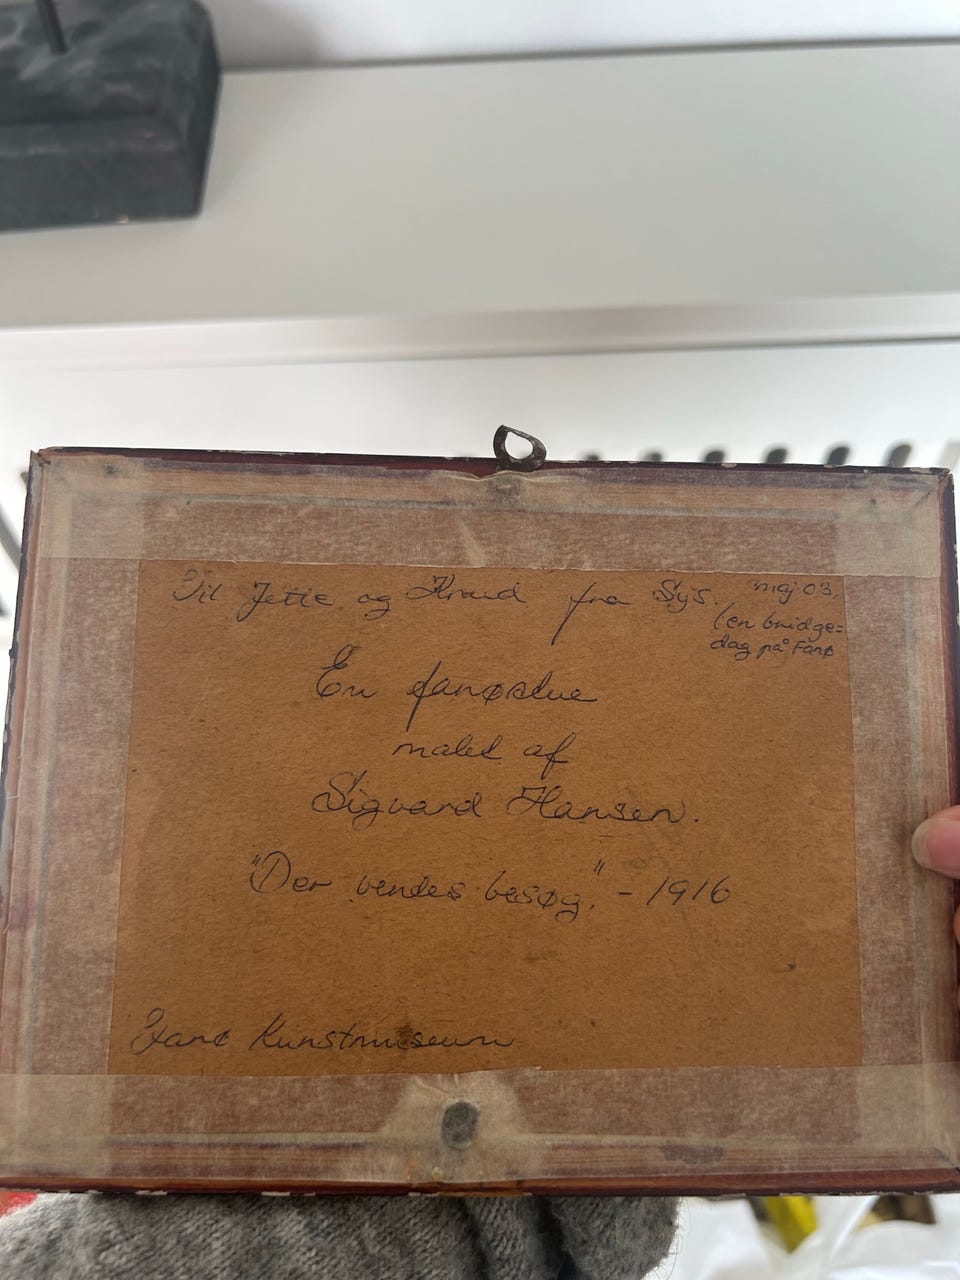 Til Jette og Knud fra Sys. maj 03.
(en bridge=
dag på Fanø
En fanøstue
malet af
Sigvard Hansen.
"Der ventes besøg." - 1916
Fanø Kunstmuseum